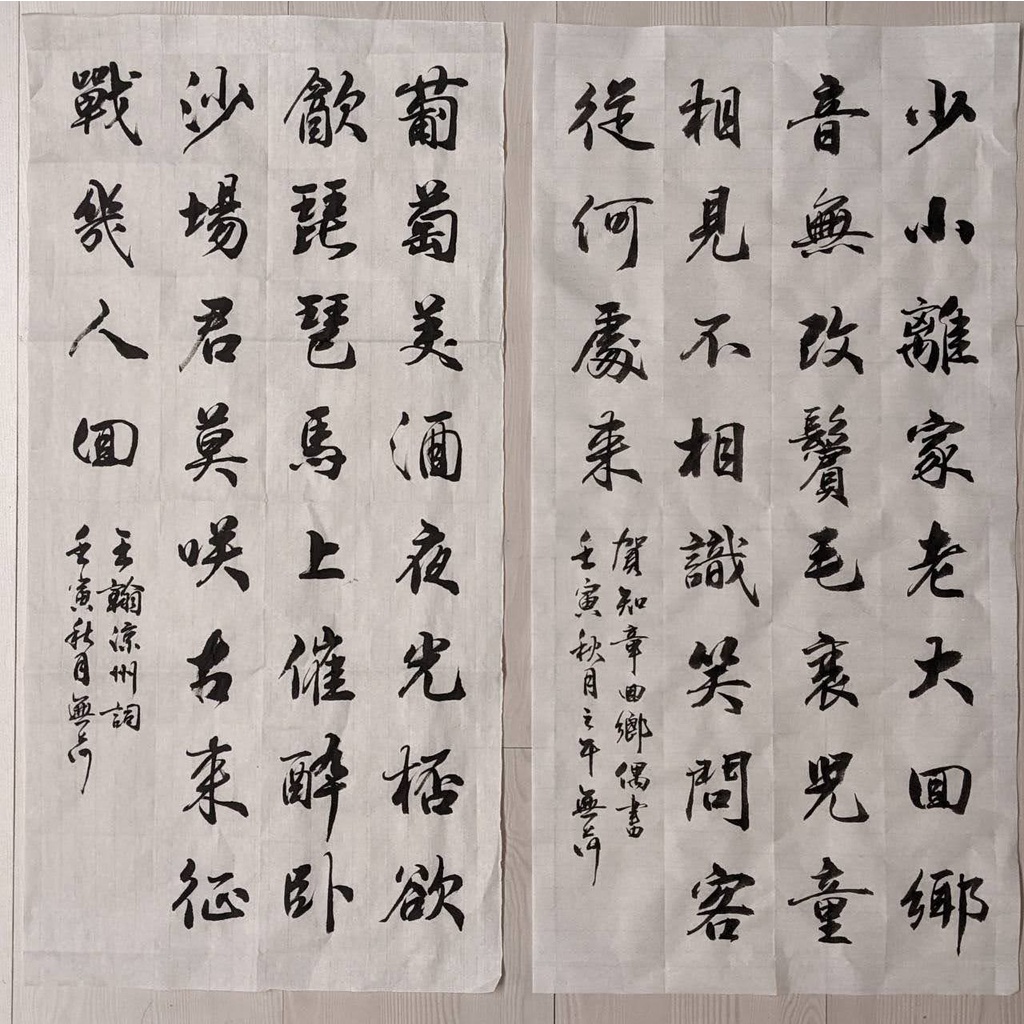 少小離家老大回鄉
音無改鬢毛衰兒童
相見不相識笑問客
從何處来
賀知章回鄉偶書
壬寅秋月之午無荷
葡萄美酒夜光桮欲
飲琵琶馬上催醉卧
沙場君莫咲古来征
戰幾人回
王翰涼州詞
壬寅秋月無荷